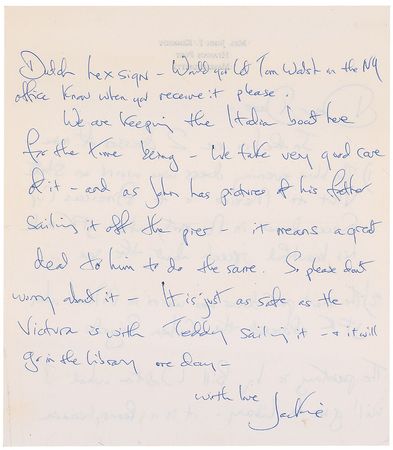 Dutch hex sign – Would you let Tom Walsh in the NY
office know when you receive it please.
We are keeping the Italian boat here
for the time being – We take very good care
of it – and as John has pictures of his father
sailing it off the pier – it means a great
deal to him to do the same. So please don't
worry about it – It is just as safe as the
Victura is with Teddy sailing it – & it will
go in the library one day –
with love
Jackie